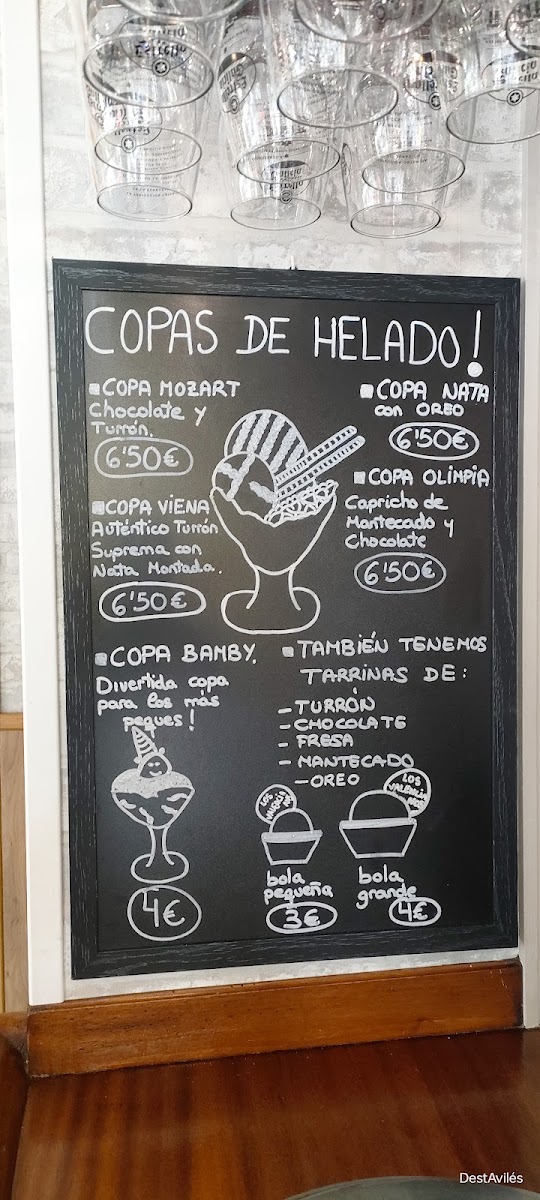 Estrella
Galicia
COPAS DE HELADO!
COPA MOZART
Chocolate y
Turrón.
6'50€
COPA NATA
con OREO
6'50€
COPA VIENA
Auténtico Turrón
Suprema con
Nata Montada.
6'50€
COPA OLIMPIA
Capricho de
Mantecado y
Chocolate
6'50€
COPA BAMBY.
Divertida copa
para los más
peques!
4€
TAMBIÉN TENEMOS
TARRINAS DE:
- TURRÓN
- CHOCOLATE
- FRESA
- MANTECADO
- OREO
LOS
VALENCIA
NOS
bola
pequeña
3€
bola
grande
4€
DestAvilés